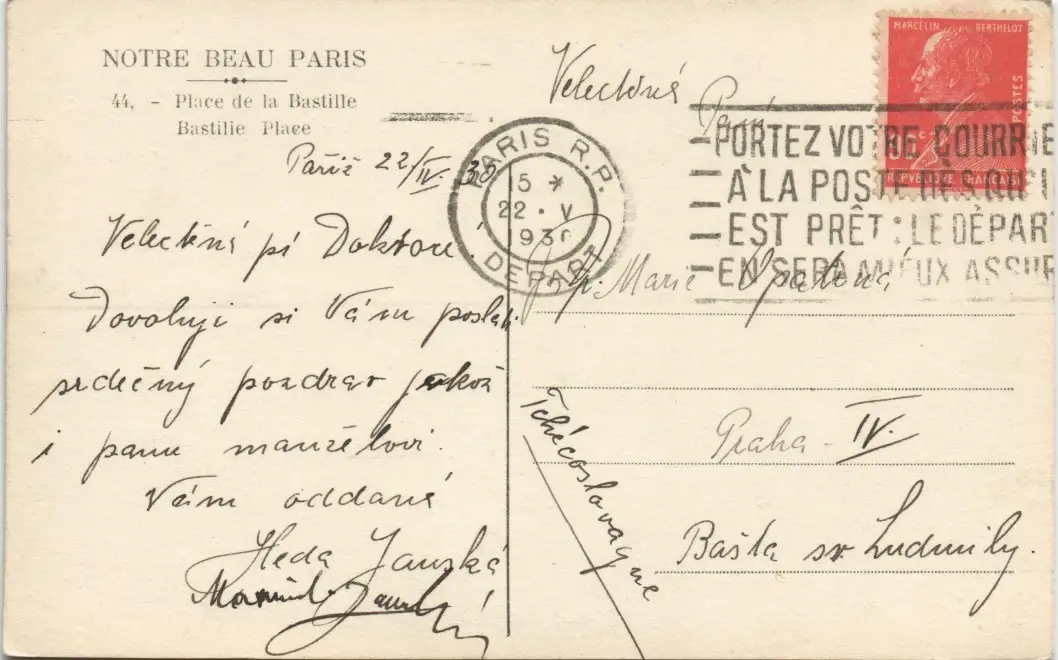 NOTRE BEAU PARIS
44, - Place de la Bastille
Bastille Place
Paříž 22/IV. 30
Velectěná pí Doktore
Dovoluji si Vám poslati
srdečný pozdrav jakož
i panu manželovi.
Vám oddaná
Heda Janská
MARCELIN BERTHELOT
POSTES
REPUBLIQUE FRANÇAISE
PARIS R.P.
15 *
22 · V
930
DEPART
PORTEZ VOTRE COURRIE
À LA POSTE DÈS QU'I
EST PRÊT : LE DÉPAR
EN SERA MIEUX ASSUR
Velectěná
Paní
p. Marie
Praha - IV.
Bašta sv. Ludmily.
Tchécoslovaque